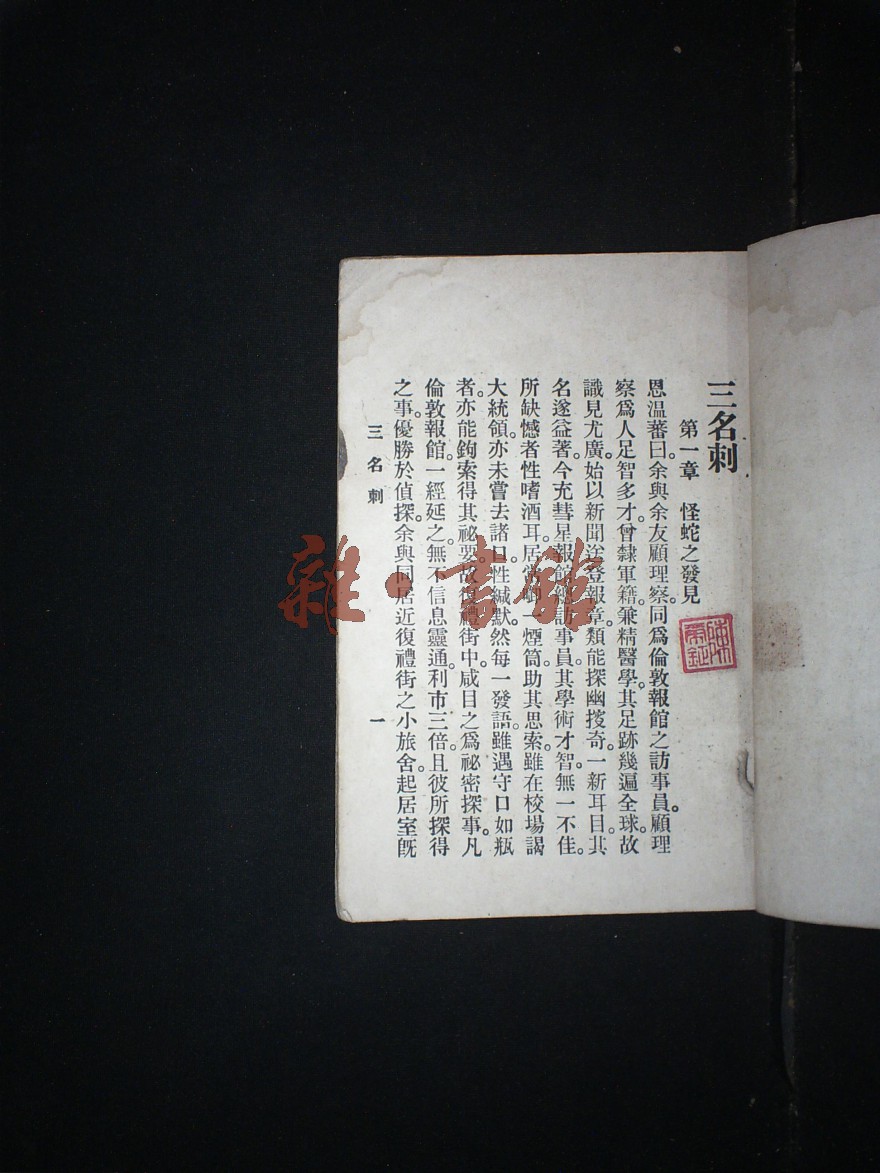 三名刺
第一章 怪蛇之發見
恩温蕃曰。余與余友顧理察同爲倫敦報館之訪事員。顧理
察爲人足智多才。曾隸軍籍。兼精醫學。其足跡幾遍全球。故
識見尤廣。始以新聞登報章。類能探幽搜奇。一新耳目。其
名遂益著。今充彗星報館訪事員。其學術才智。無一不佳。
所缺憾者性嗜酒耳。居常一煙筒助其思索。雖在校場謁
大統領。亦未嘗去諸口。性緘默然。每一發語。雖遇守口如瓶
者。亦能鉤索得其祕要。故復禮街中。咸目之爲祕密探事。凡
倫敦報館。一經延之。無不信息靈通。利市三倍。且彼所探得
之事。優勝於偵探。余與同居近復禮街之小旅舍。起居室旣
三名刺
一
雜·書館